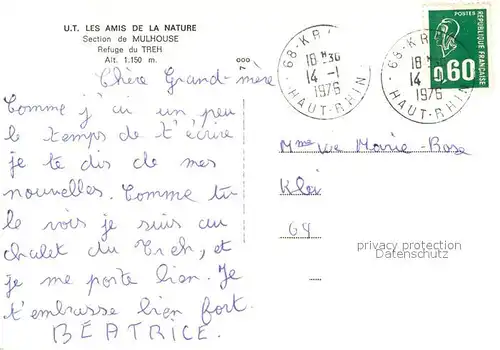 U.T. LES AMIS DE LA NATURE
Section de MULHOUSE
Refuge du TREH
Alt. 1.150 m.
Chère Grand-mère
Comme j'ai un peu
le temps de t'écrire
je te dis de mes
nouvelles. Comme tu
le vois je suis au
chalet du Treh, et
je me porte bien. Je
t'embrasse bien fort.
BÉATRICE.
000
7
68-KR
18H30
14-1
1976
HAUT-RHIN
68-KR
18 30
14
1976
HAUT-RHIN
POSTES
0,60
REPUBLIQUE FRANÇAISE
Mme Vve Marie-Rose
68
privacy protection
Datenschutz